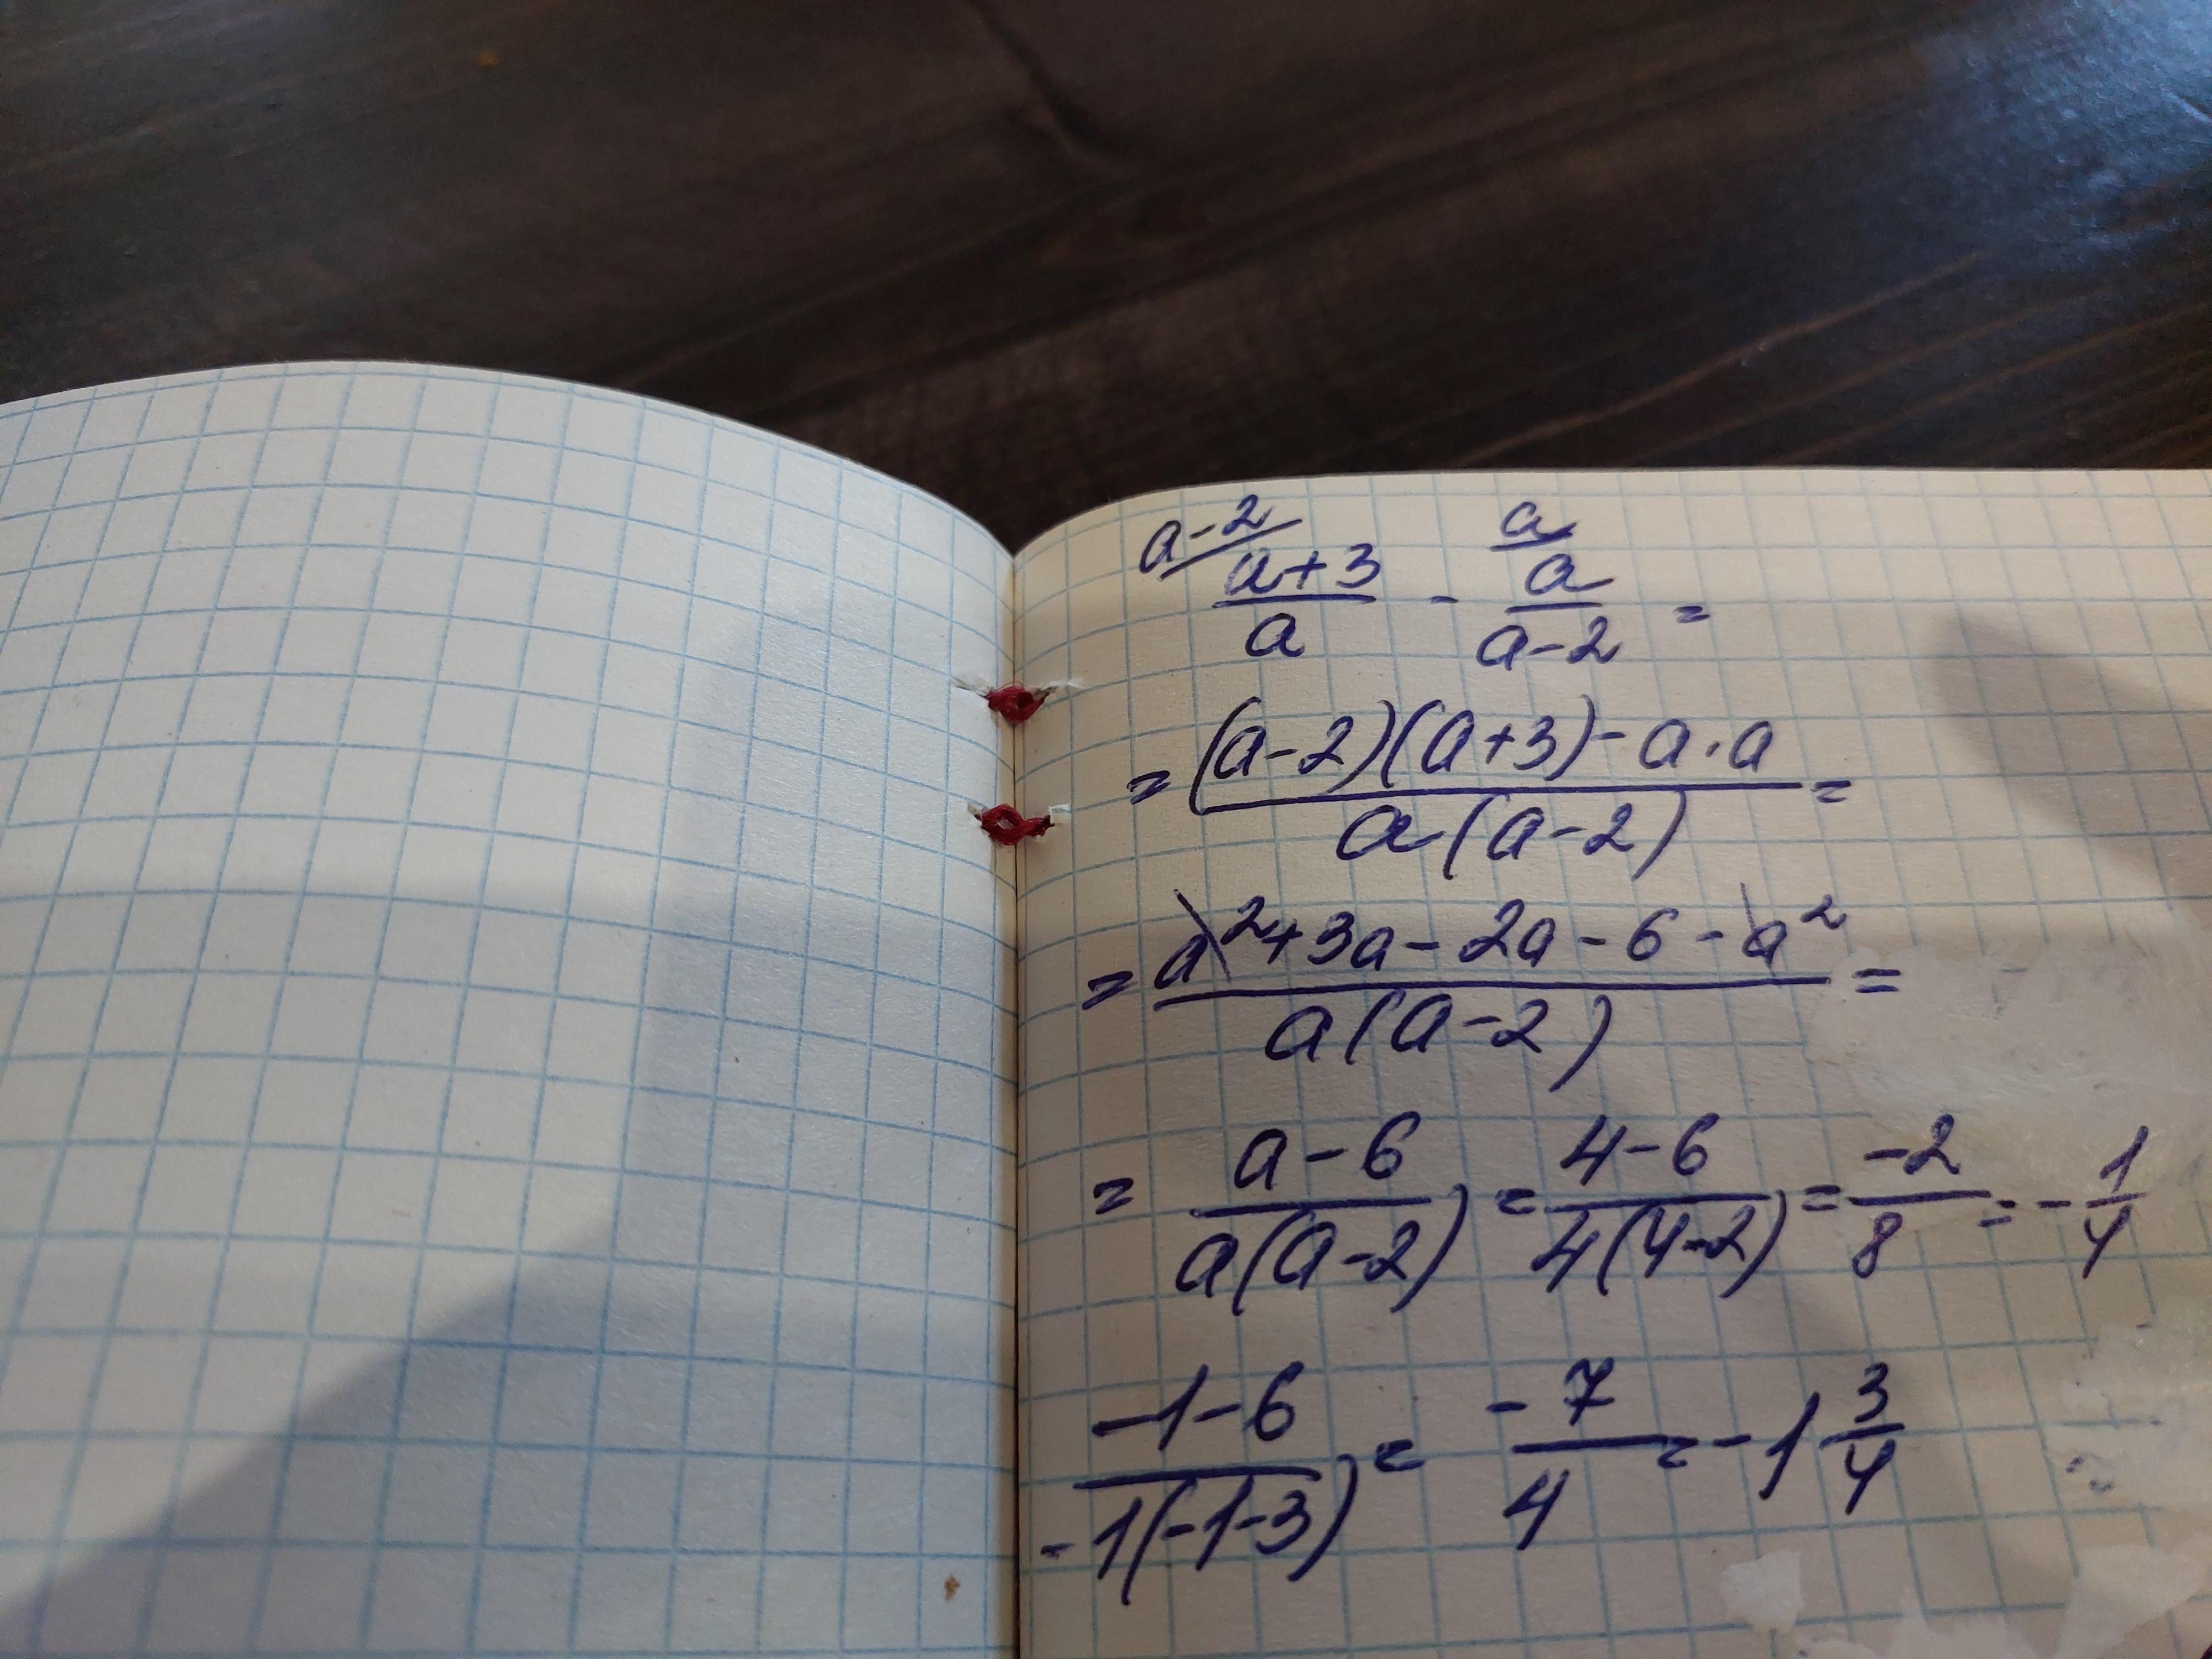 a-2/ a+3/a - a/ a/a-2 =
= (a-2)(a+3)-a·a/a(a-2) =
= a²+3a-2a-6-a²/a(a-2) =
= a-6/a(a-2) = 4-6/4(4-2) = -2/8 = -1/4
-1-6/-1(-1-3) = -7/4 = -1 3/4